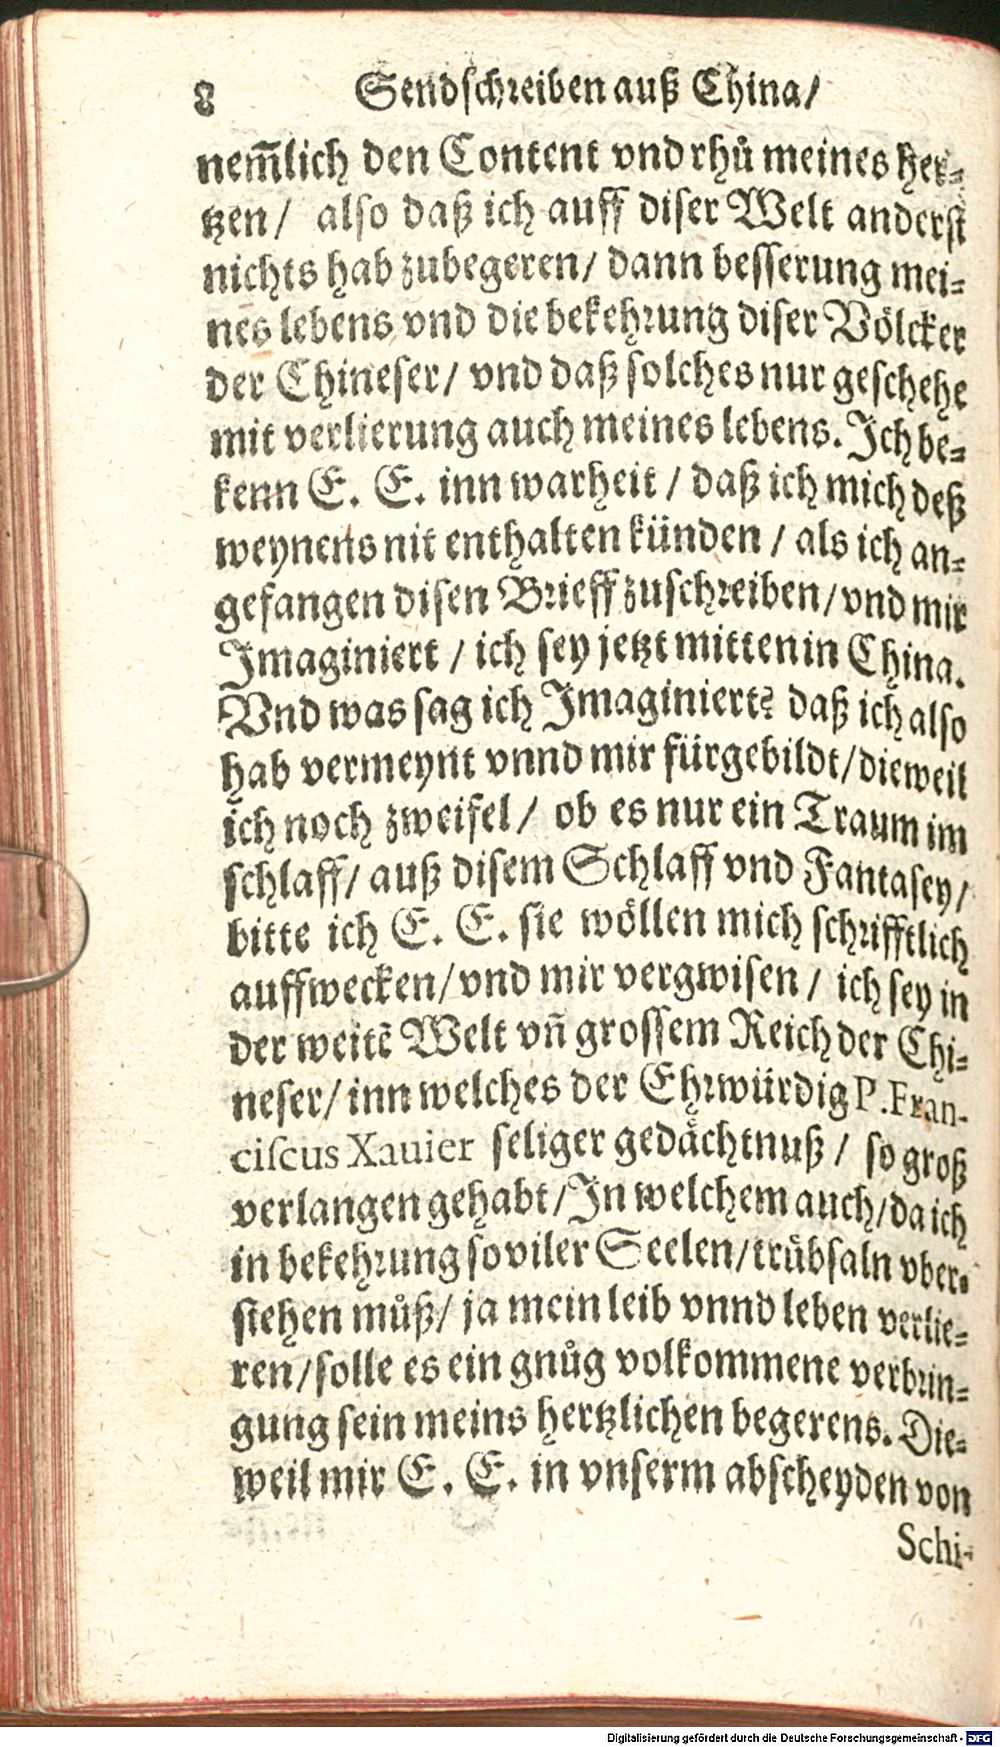 8 Sendschreiben auß China/
nem̃lich den Content vnd rhů meines her-
tzen/ also daß ich auff diser Welt anderst
nichts hab zubegeren/ dann besserung mei-
nes lebens vnd die bekehrung diser Völcker
der Chineser/ vnd daß solches nur geschehe
mit verlierung auch meines lebens. Ich be-
kenn E. E. inn warheit / daß ich mich deß
weynens nit enthalten künden / als ich an-
gefangen disen Brieff zuschreiben/ vnd mir
Imaginiert / ich sey jetzt mitten in China.
Vnd was sag ich Imaginiert? daß ich also
hab vermeynt vnnd mir fürgebildt/ dieweil
ich noch zweifel/ ob es nur ein Traum im
schlaff/ auß disem Schlaff vnd Fantasey/
bitte ich E. E. sie wöllen mich schrifftlich
auffwecken/ vnd mir vergwisen / ich sey in
der weitẽ Welt vñ grossem Reich der Chi-
neser/ inn welches der Ehrwürdig P. Fran-
ciscus Xauier seliger gedächtnuß / so groß
verlangen gehabt/ In welchem auch/ da ich
in bekehrung so viler Seelen/ trůbsaln vber-
stehen můß/ ja mein leib vnnd leben verlie-
ren/ solle es ein gnůg volkommene verbrin-
gung sein meins hertzlichen begerens. Die-
weil mir E. E. in vnserm abscheyden von
Schi-
Digitalisierung gefördert durch die Deutsche Forschungsgemeinschaft - DFG